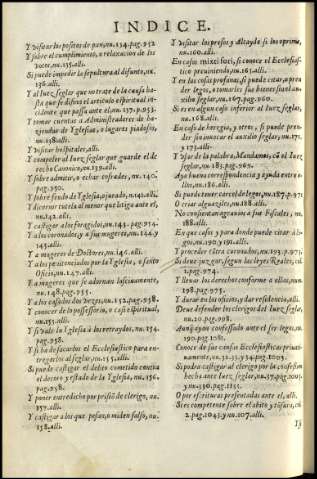 INDICE.
Y visitar los positos de pan, nu. 134. pag. 952
Y sobre el cumplimiento, o relaxacion de los
votos, nu. 135. alli.
Si puede impedir la sepultura al difunto, nu.
136. alli.
Y al Iuez seglar que no trate de la causa hasta
que se difina el articulo espiritual incidente
que passa ante el, nu. 137. p. 953.
Y tomar cuenta a Administradores de haziendas
de Yglesias, o lugares piadosos,
nu. 138. alli.
Y visitar hospitales, alli.
Y compeler al Iuez seglar que guarde el derecho
Canonico, nu. 139. alli.
Y sobre admitir, o echar cofrades, nu. 140.
pag. 950.
Y sobre feudo de Yglesia, jurado, n. 141. alli.
Y dicernir tutela al menor que litiga ante el,
nu. 142. alli.
Y castigar a los foragidos, nu. 143. pag. 954.
Y a los coronados, y a sus mugeres, nu. 144. y
145. alli.
Y a mugeres de Doctores, nu. 146. alli.
Y a los penitenciados por la Yglesia, o santo
Oficio, nu. 147. alli.
Y a mugeres que se adornan lascivamente,
nu. 148. pag. 955.
Y a los casados dos vezes, nu. 152. pag. 958.
Y conocer de la possessorio, o casi espiritual,
nu. 153. alli.
Y si vale la Yglesia a los retraydos, nu. 154.
pag. 958.
Y si ha de sacarlos el Ecclesiastico para entregarlos
al seglar, nu. 155. alli.
Si puede castigar el delito cometido encima
el techo y estado de la Yglesia, nu. 156.
pag. 958.
Y poner entredicho por prisiõ de clerigo, nu.
157. alli.
Y castigar a los que pesan, o miden falso, nu.
158. alli.
Y visitar los presos y Altayde si los oprime,
nu. 160. alli.
En caso mixti fori, si conoce el Ecclesiastico
previniendo, nu. 161. alli.
Y en las cosas profanas, si puede citar, o prender
legos, o tomarles sus bienes sin el auxilio
seglar, nu. 167. pag. 960.
Si es en algun caso inferior al Iuez seglar,
nu. 168. alli.
En caso de heregia, y otros, si puede prender
sin invocar el auxilio seglar, nu. 171.
y 173. alli.
Y usar de la palabra, Mandamos, cõ al Iuez
seglar, nu. 185. pag. 967.
Aya buena correspondencia y ayuda entre
ellos, nu. 186. alli.
Si puede tener carcel de legos, nu. 187. p. 971
O criar alguaziles, nu. 188. alli.
No consientan agravios a sus Fiscales, nu.
188. alli.
En que casos y para donde puede citar a legos,
nu. 190. y 191. alli.
Y proceder cõtra coronados, nu. 193. p. 973.
Si deve juzgar, segun las leyes Reales, cõ
2. pag. 974.
Y llevar los derechos conforme a ellas, nu.
198. pag. 975.
Y durar en los oficios, y dar residencia, alli.
Deve defender los clerigos del Iuez seglar,
nu. 208. pag. 998.
Aunq̃ ayan confessado ante el ser legos, nu.
190. pag. 1081.
Conoce de sus causas Ecclesiasticas privativamente,
nu. 32. 33. y 34. pag. 1003.
Si podra castigar al clerigo por la confessiõ
hecha ante Iuez seglar, nu. 57. pag. 1013.
y nu. 130. pag. 1155.
O por escrituras presentadas ante el, alli.
Si es competente sobre el abito y tõsura, cõ
2. pag. 1045. y nu. 107. alli.
Si